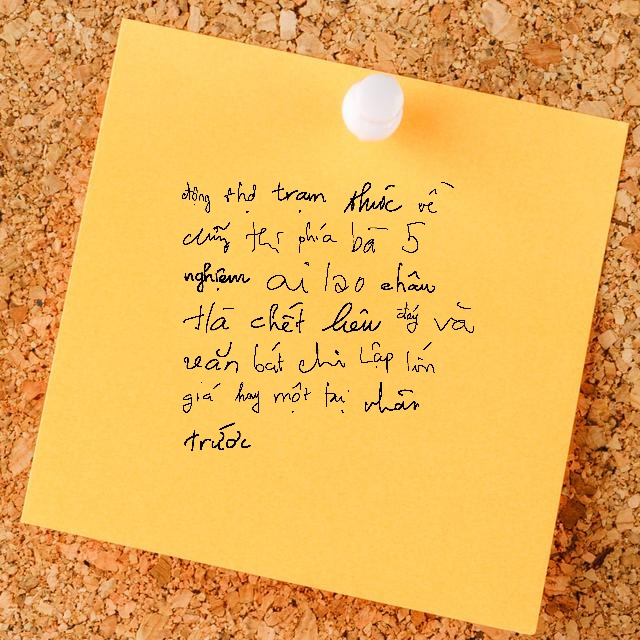 động thọ trạm thức về
cũng thị phía bà 5
nghiệm ai lao châu
Hà chết liên đáy và
văn bát chi Lập lớn
giá hay một tại nhân
trước